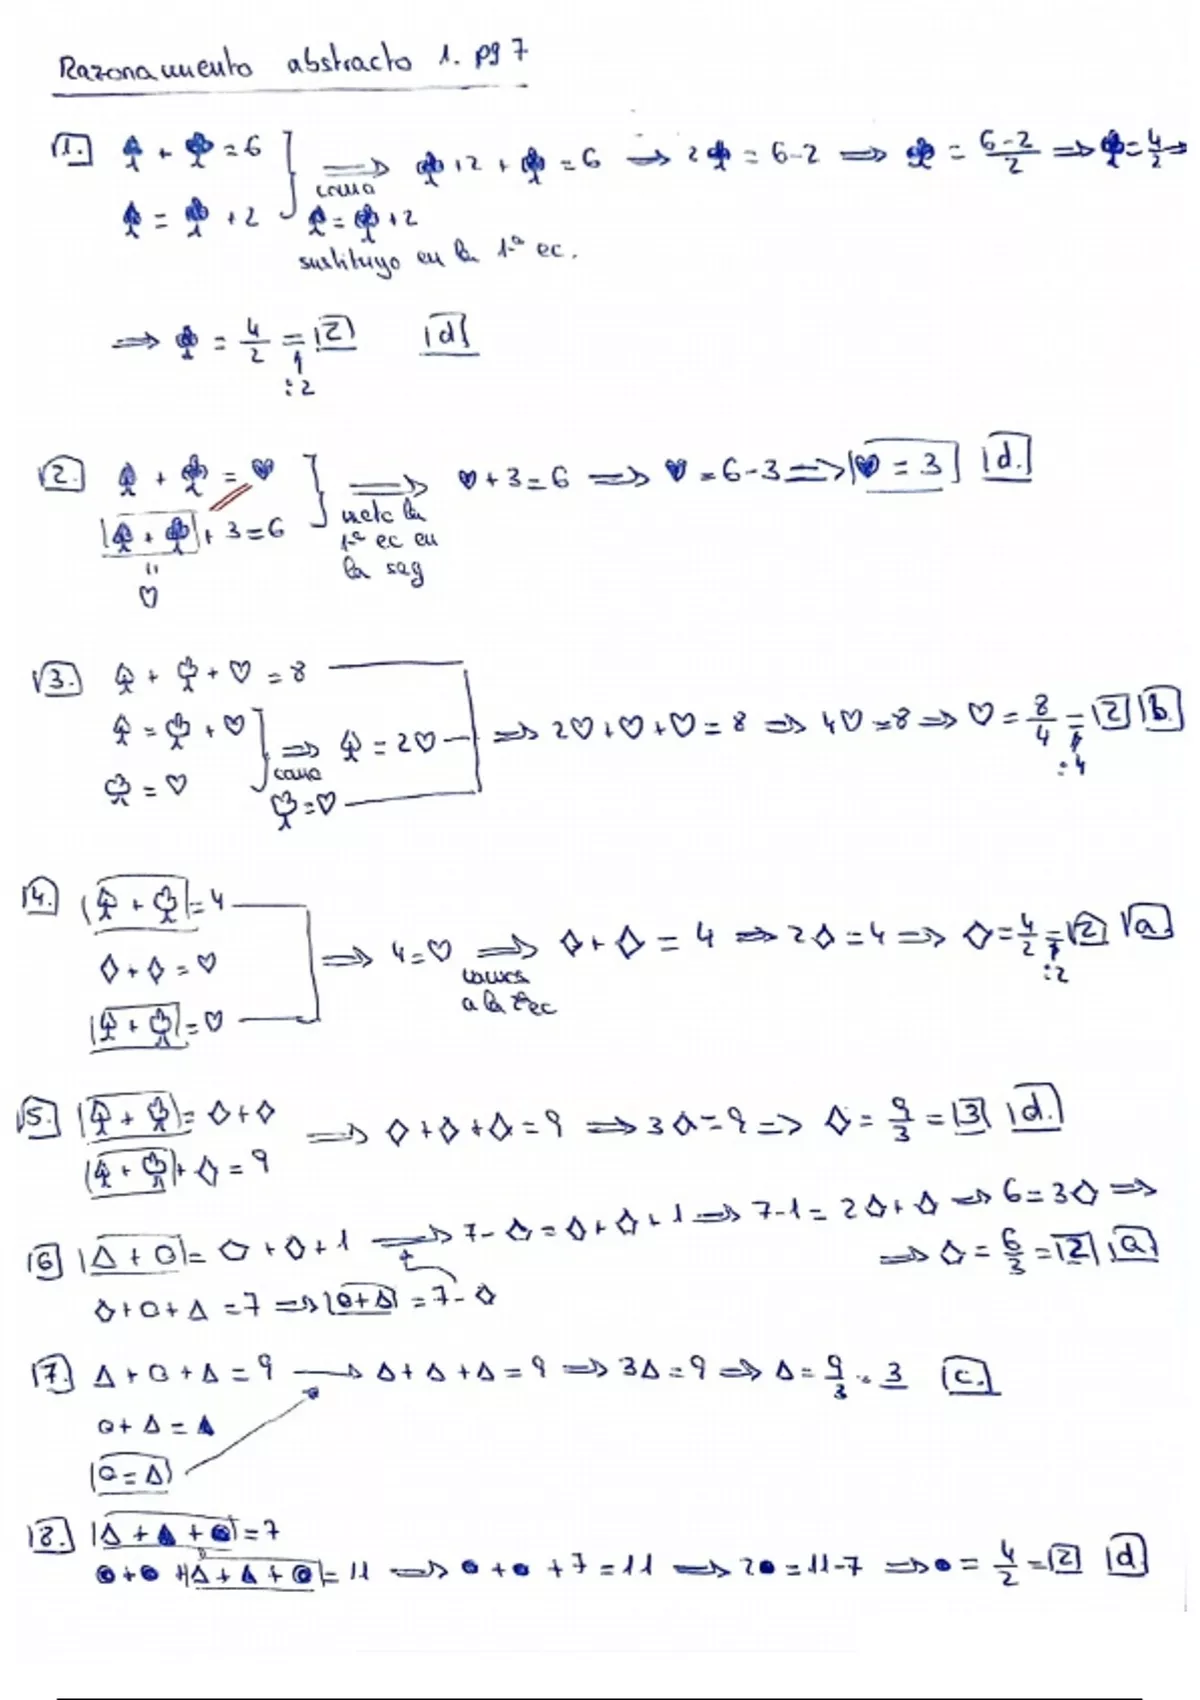 Razonamiento abstracto 1. pg 7
1. ♠ + ♣ = 6 ⟹ ♣ + 2 + ♣ = 6 → 2♣ = 6-2 ⟹ ♣ = 6-2/2 ⟹ ♣ = 4/2 →
como
♠ = ♣ + 2 ♠ = ♣ + 2
sustituyo en la 1ª ec.
⟹ ♣ = 4/2 = 2 d
:2
2. ♠ + ♣ = ♥ ⟹ ♥ + 3 = 6 ⟹ ♥ = 6-3 ⟹ ♥ = 3 d.
♠ + ♣ + 3 = 6 meto la
1ª ec en
la seg
"
♡
3. ♤ + ♧ + ♡ = 8
♤ = ♧ + ♡ ⟹ ♤ = 2♡ ⟹ 2♡ + ♡ + ♡ = 8 ⟹ 4♡ = 8 ⟹ ♡ = 8/4 = 2 b.
:4
♧ = ♡ como
♧ = ♡
4. ♤ + ♧ = 4
◇ + ◇ = ♡ ⟹ 4 = ♡ ⟹ ◇ + ◇ = 4 ⟹ 2◇ = 4 ⟹ ◇ = 4/2 = 2 a
:2
a la 2ª ec
♤ + ♧ = ♡
5. ♤ + ♧ = ◇ + ◇ ⟹ ◇ + ◇ + ◇ = 9 ⟹ 3◇ = 9 ⟹ ◇ = 9/3 = 3 d.
♤ + ♧ + ◇ = 9
6 △ + ○ = ◇ + ◇ + 1 ⟹ 7 - ◇ = ◇ + ◇ + 1 ⟹ 7-1 = 2◇ + ◇ ⟹ 6 = 3◇ ⟹
⟹ ◇ = 6/3 = 2 a
◇ + ○ + △ = 7 ⟹ ○ + △ = 7 - ◇
7. △ + ○ + △ = 9 → △ + △ + △ = 9 ⟹ 3△ = 9 ⟹ △ = 9/3 = 3 c.
○ + △ = ▲
○ = △
8. △ + ▲ + ● = 7
● + ● + △ + ▲ + ● = 11 ⟹ ● + ● + 7 = 11 ⟹ 2● = 11-7 ⟹ ● = 4/2 = 2 d